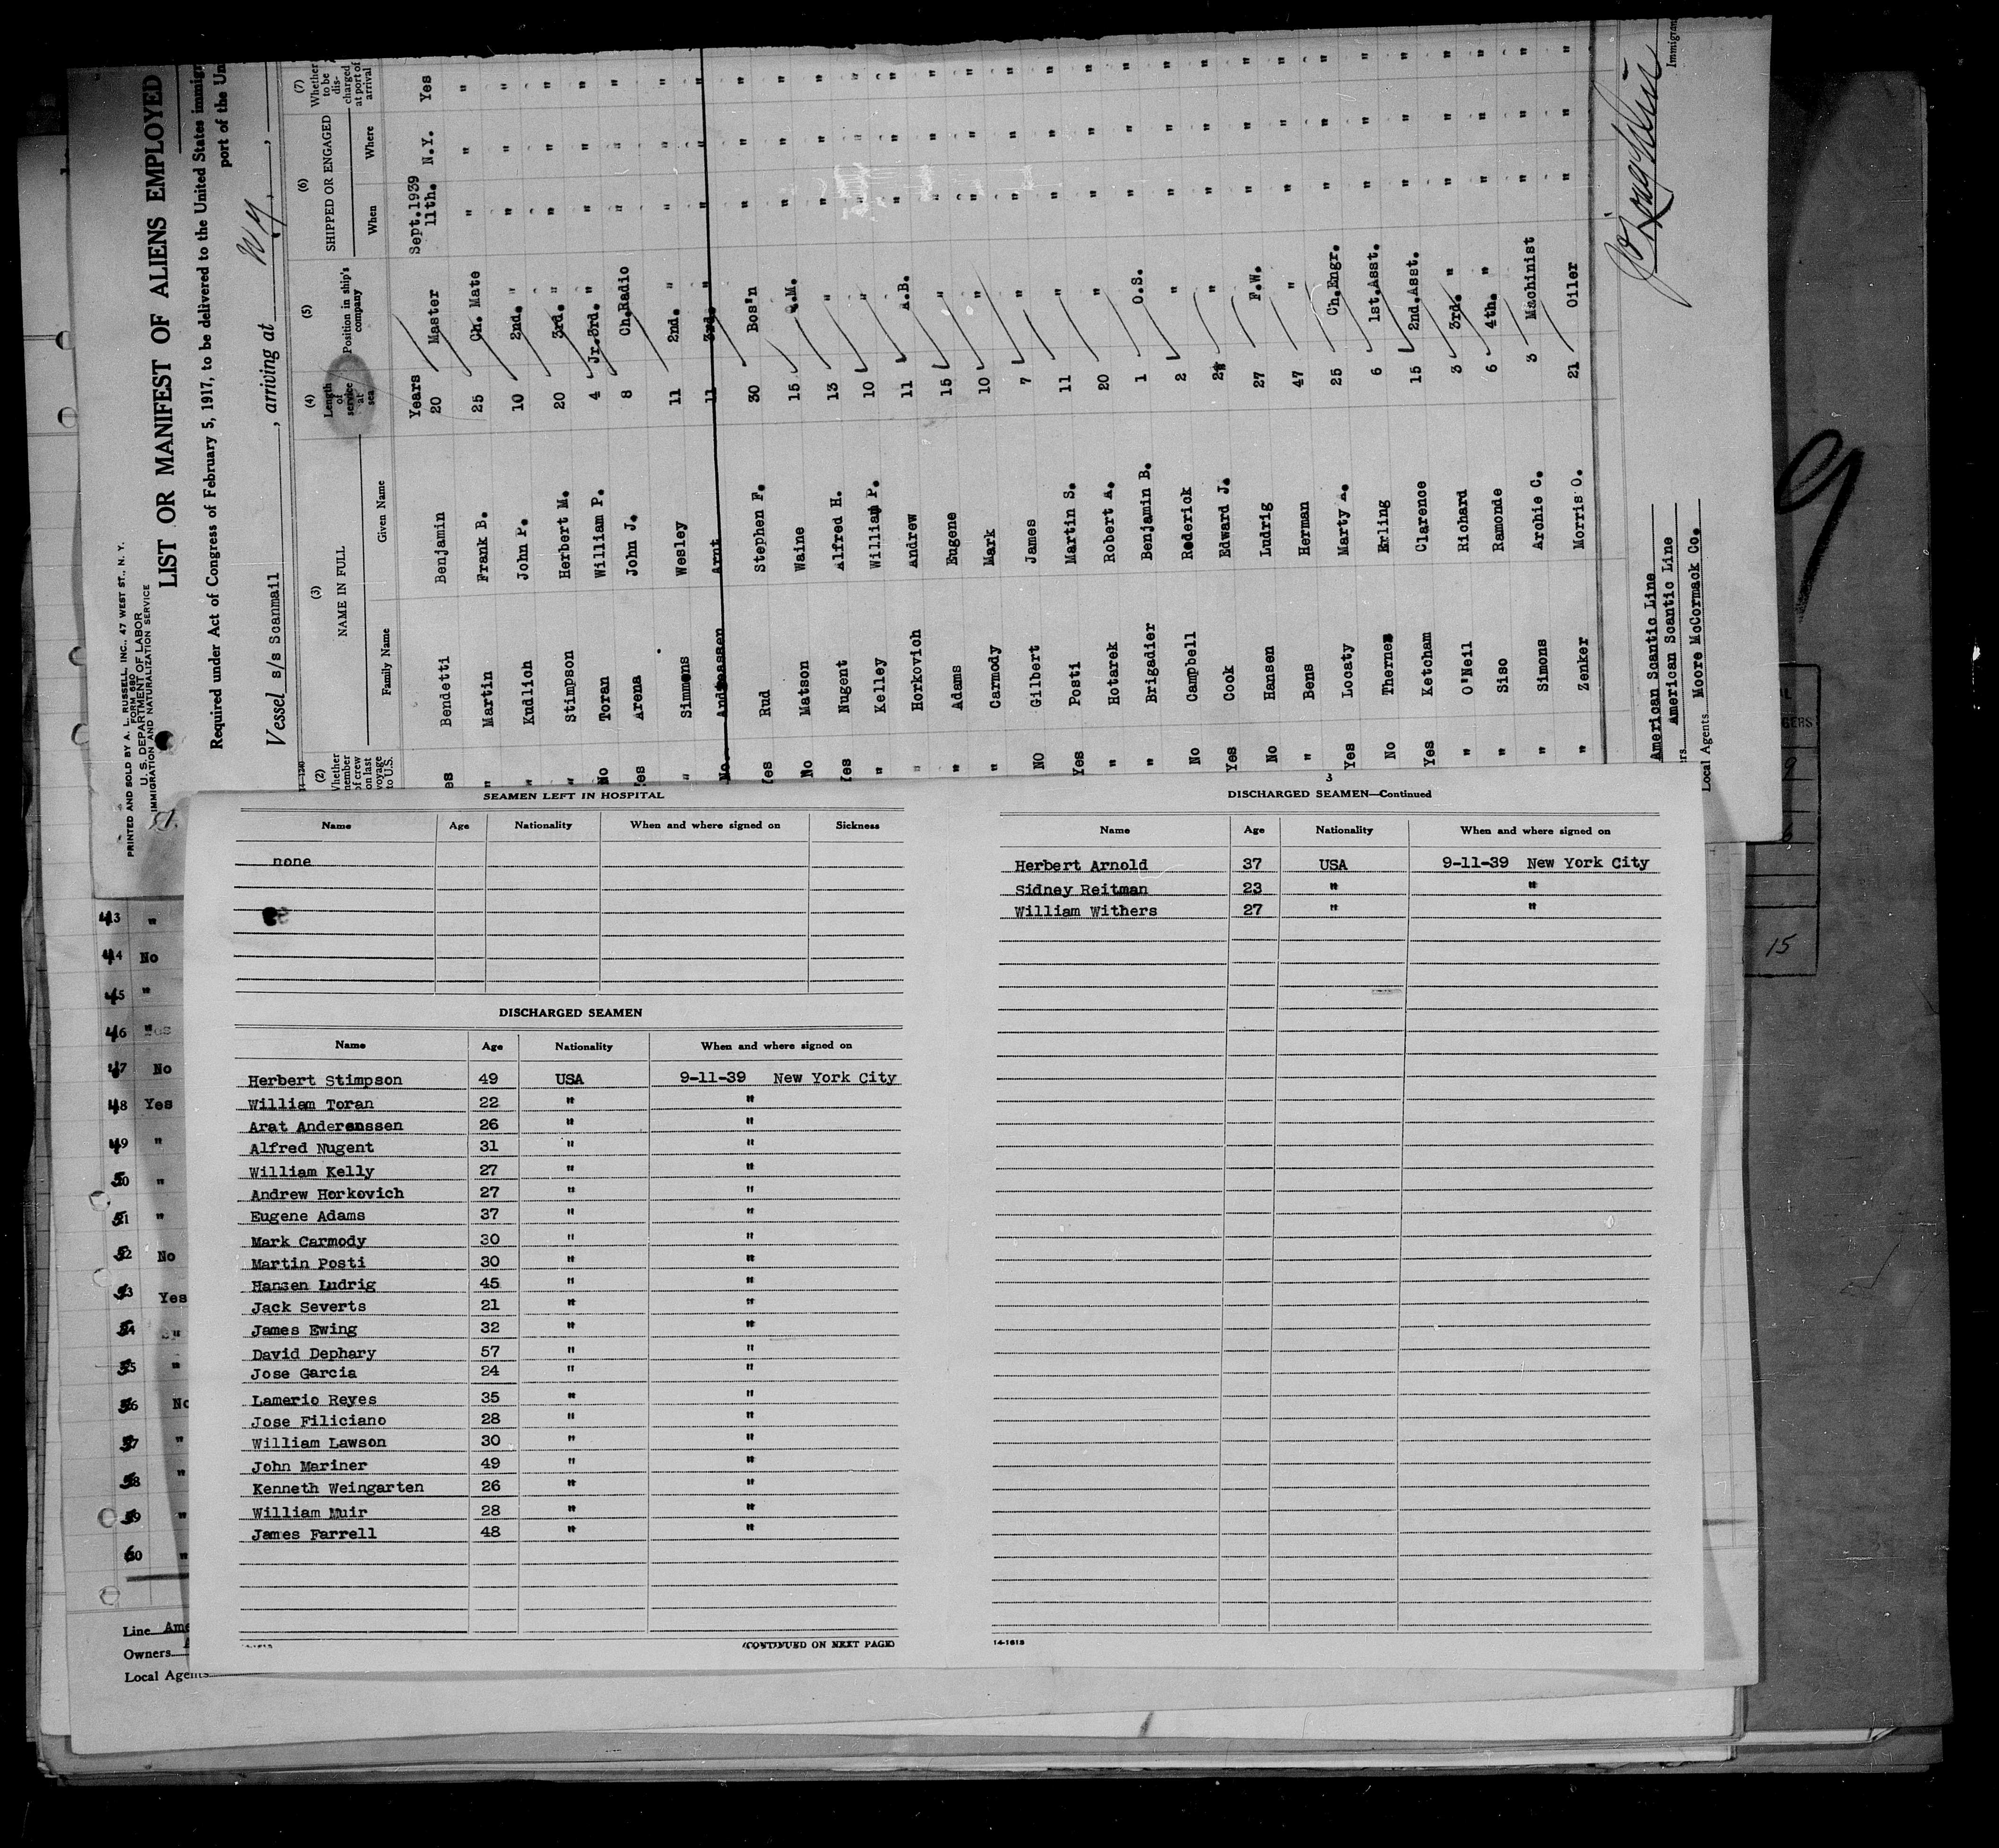 PRINTED AND SOLD BY A. L. RUSSELL, INC., 47 WEST ST., N. Y.
FORM 680
U. S. DEPARTMENT OF LABOR
IMMIGRATION AND NATURALIZATION SERVICE
LIST OR MANIFEST OF ALIENS EMPLOYED
Required under Act of Congress of February 5, 1917, to be delivered to the United States immigr
port of the Un
Vessel s/s Scanmail, arriving at N.Y.,
(2) (3) (4) (5) (6) (7)
Whether member of crew on last voyage to U.S. NAME IN FULL Length of service at sea Position in ship's company SHIPPED OR ENGAGED Whether to be discharged at port of arrival
Family Name Given Name When Where
Years Sept.1939
es Bendetti Benjamin 20 Master 11th. N.Y. Yes
" Martin Frank B. 25 Ch. Mate " " "
" Kudlich John P. 10 2nd. " " " "
" Stimpson Herbert M. 20 3rd. " " " "
No Toran William P. 4 Jr.3rd. " " " "
es Arena John J. 8 Ch.Radio " " "
" Simmons Wesley 11 2nd. " " " "
No. Andreassen Arnt 11 3rd. " " " "
es Rud Stephen F. 30 Bos'n " " "
No Matson Waine 15 Q.M. " " "
es Nugent Alfred H. 13 " " " "
" Kelley William P. 10 " " " "
" Horkovich Andrew 11 A.B. " " "
" Adams Eugene 15 " " " "
" Carmody Mark 10 " " " "
NO Gilbert James 7 " " " "
Yes Posti Martin S. 11 " " " "
" Hotarek Robert A. 20 " " " "
" Brigadier Benjamin B. 1 O.S. " " "
No Campbell Roderick 2 " " " "
Yes Cook Edward J. " " " "
No Hansen Ludrig 27 F.W. " " "
" Bens Herman 47 " " " "
Yes Locaty Marty A. 25 Ch.Engr. " " "
No Thernes Erling 6 1st.Asst. " " "
Yes Ketcham Clarence 15 2nd.Asst. " " "
" O'Neil Richard 3 3rd. " " " "
" Siso Ramonde 6 4th. " " " "
" Simons Archie C. 3 Machinist " " "
" Zenker Morris O. 21 Oiler " " "
American Scantic Line
rs American Scantic Line
Local Agents Moore McCormack Co.
Immigran
SEAMEN LEFT IN HOSPITAL
Name Age Nationality When and where signed on Sickness
none
DISCHARGED SEAMEN
Name Age Nationality When and where signed on
Herbert Stimpson 49 USA 9-11-39 New York City
William Toran 22 " "
Arat Anderenssen 26 " "
Alfred Nugent 31 " "
William Kelly 27 " "
Andrew Horkovich 27 " "
Eugene Adams 37 " "
Mark Carmody 30 " "
Martin Posti 30 " "
Hansen Ludrig 45 " "
Jack Severts 21 " "
James Ewing 32 " "
David Dephary 57 " "
Jose Garcia 24 " "
Lamerio Reyes 35 " "
Jose Filiciano 28 " "
William Lawson 30 " "
John Mariner 49 " "
Kenneth Weingarten 26 " "
William Muir 28 " "
James Farrell 48 " "
(CONTINUED ON NEXT PAGE)
3
DISCHARGED SEAMEN—Continued
Name Age Nationality When and where signed on
Herbert Arnold 37 USA 9-11-39 New York City
Sidney Reitman 23 " "
William Withers 27 " "
14-1613
43 "
44 No
45 "
46 "
47 No
48 Yes
49 "
50 "
51 "
52 No
53 Yes
54 "
55 "
56 No
57 "
58 "
59 "
60 "
Line Ame
Owners A
Local Agents
9
GERS
9
15